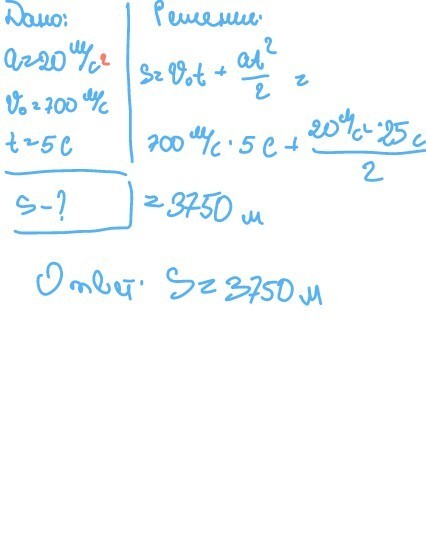 Дано:
a=20 м/с²
v₀=700 м/с
t=5 с
s-?
Решение:
s=v₀t + at²/2 =
700 м/с · 5 с + 20 м/с² · 25 с/2
= 3750 м
Ответ: S=3750 м